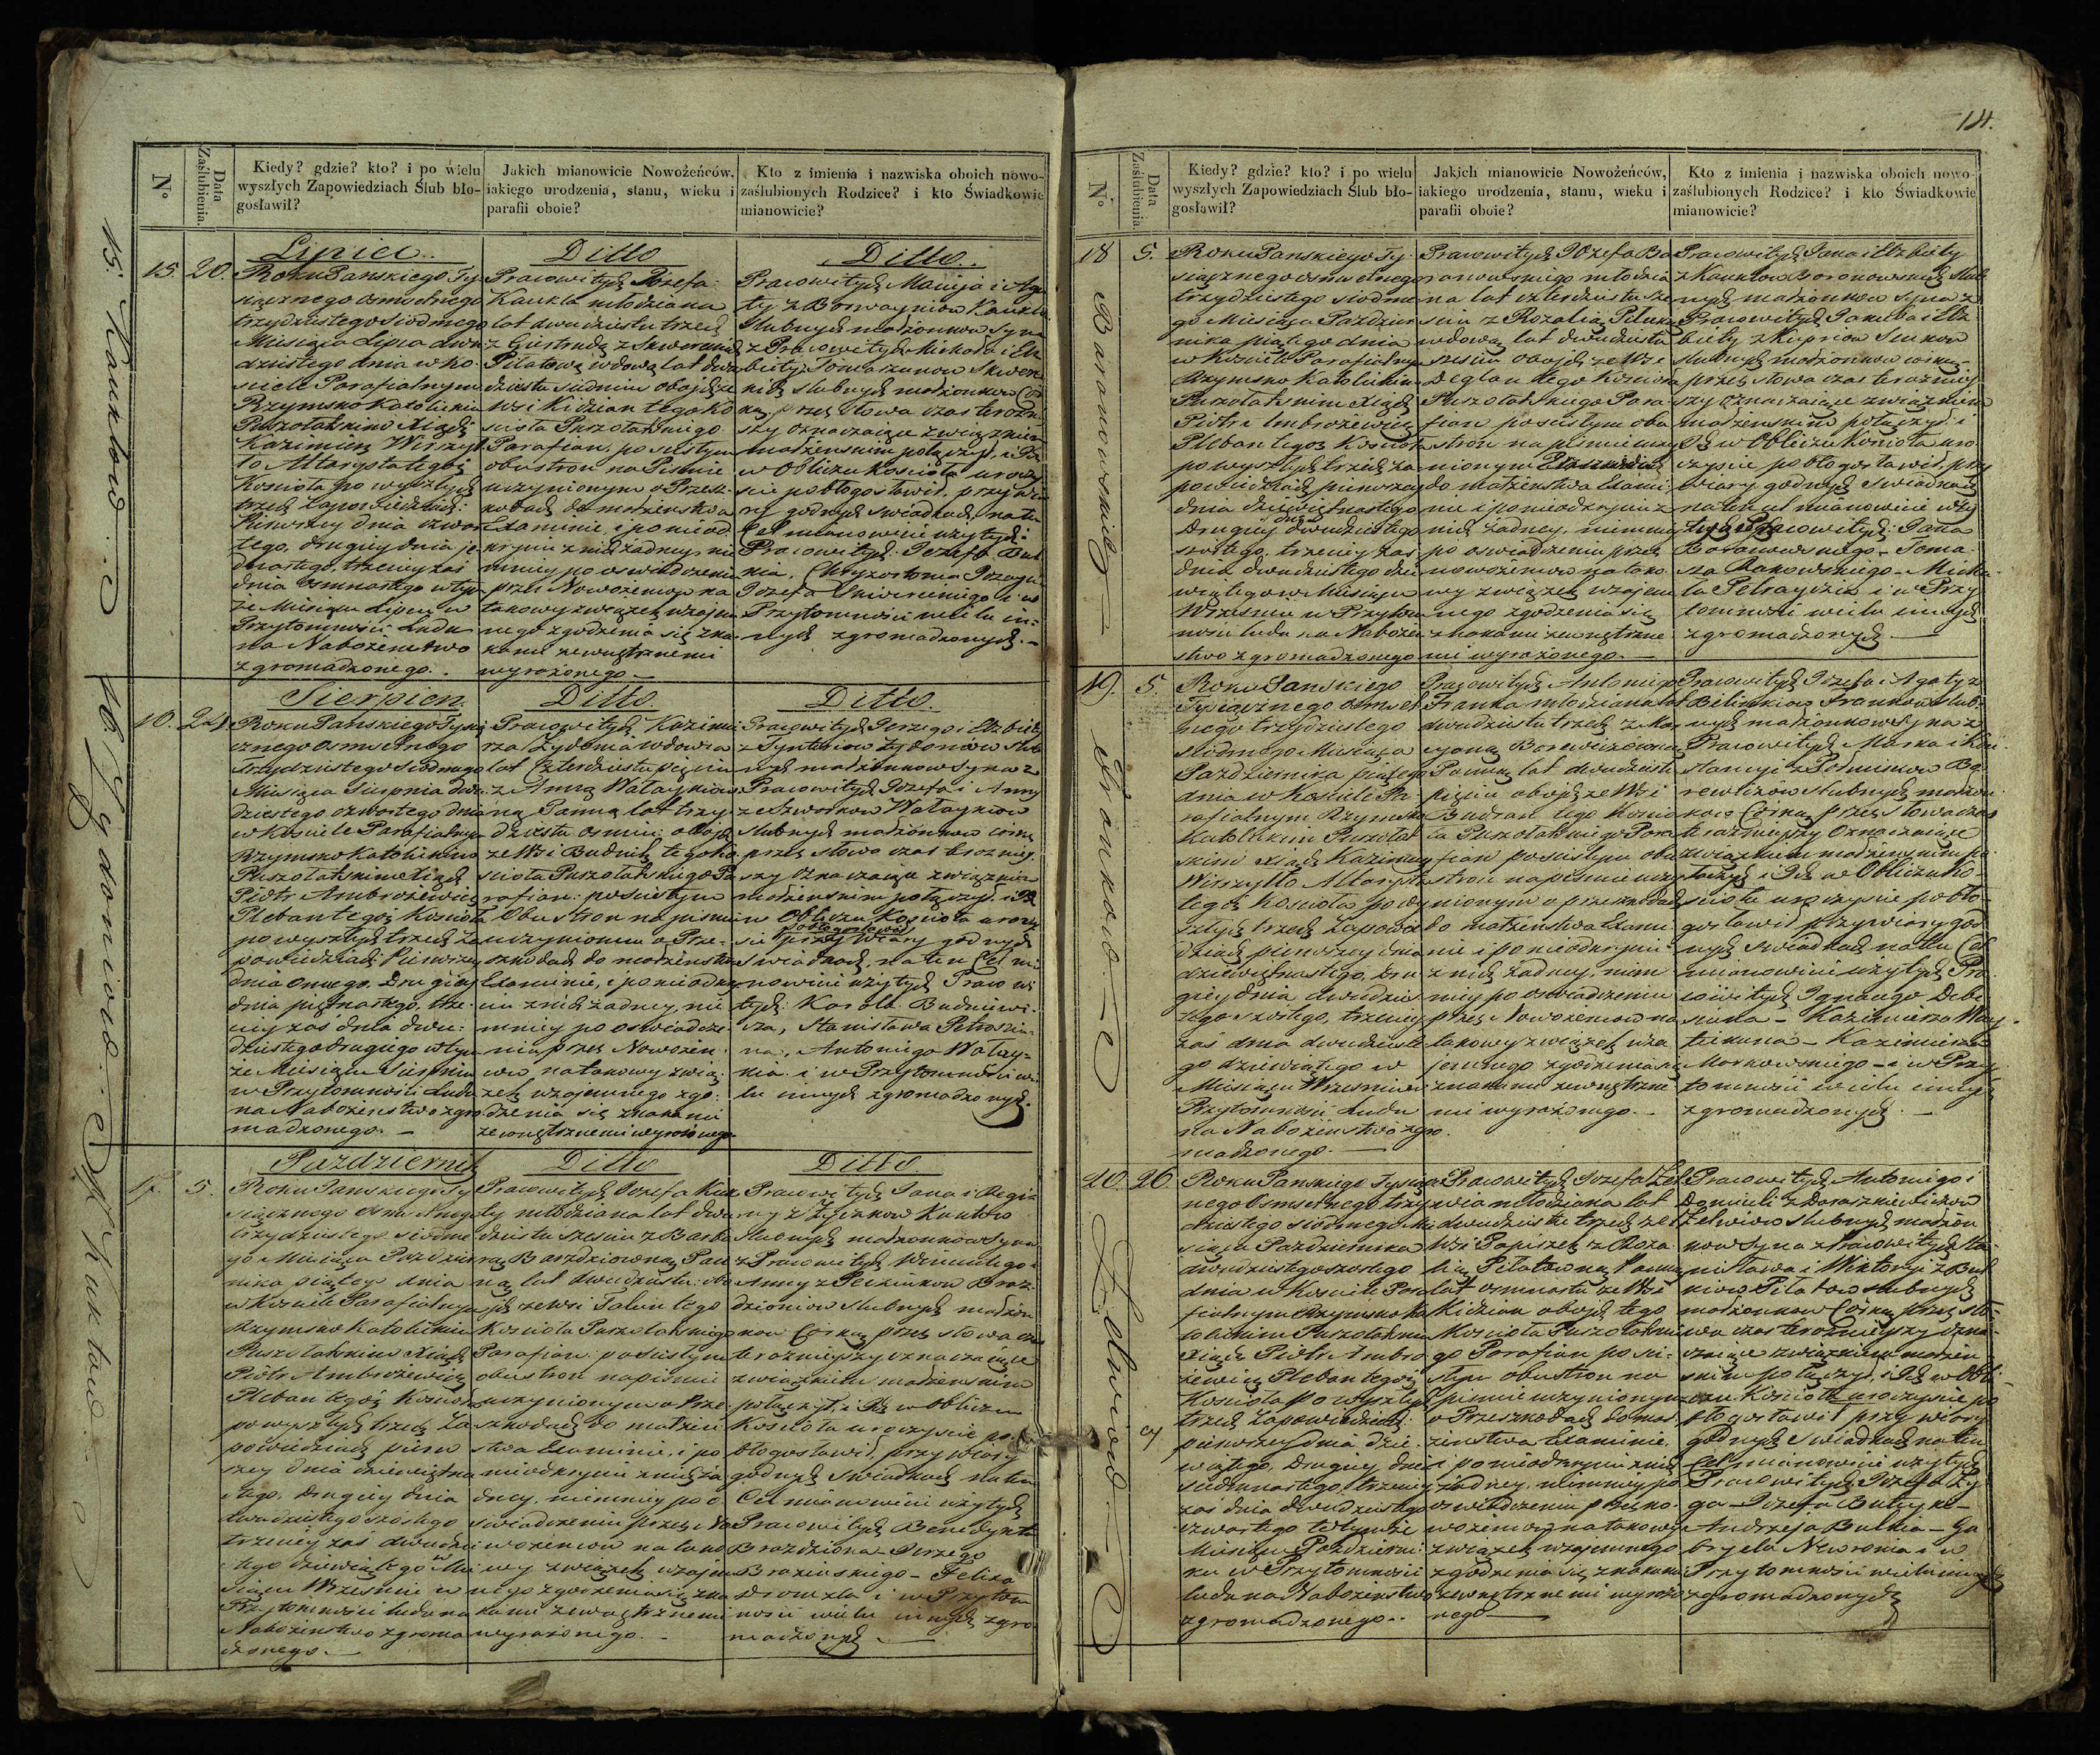 No
Data Zaślubienia.
Kiedy? gdzie? kto? i po wielu
wyszłych Zapowiedziach Ślub bło-
gosławił?
Jakich mianowicie Nowożeńców,
iakiego urodzenia, stanu, wieku i
parafii oboie?
Kto z imienia i nazwiska oboich nowo-
zaślubionych Rodzice? i kto Świadkowie
mianowicie?
15.
20.
Lipiec.
Roku Panskiego Ty-
siącznego osmsetnego
trzydziestego siodmego
Miesiąca Lipca dwu-
dziestego dnia w Ko-
sciele Parafialnym
Rzymsko Katolickim
Puszołatskim Xiądz
Kazimierz Wirszył-
ło Altarysta tegoż
Kościoła po wyszłych
trzech Zapowiedziach:
Pierwszey dnia czwar-
tego, drugiey dnia je-
dnastego, trzeciey zaś
dnia osmnastego w tym-
że Miesiącu Lipcu w
Przytomności Ludu
na Nabożeństwo
zgromadzonego.
Ditto
Pracowitych Józefa
Kaukla młodziana
lat dwudziestu trzech
z Giertrudą z Skwereckich
Piłatową wdową lat dwu-
dziestu siedmiu obojch ze
Wsi Kidzian tego Ko-
scioła Puszołatskiego
Parafian, po scisłym
obustron na Pismie
uczynionym o Przesz-
kodach do małżeństwa
Examinie i po nieod-
kryciu z nich żadney, nie
mniey po oswiadczeniu
przez Nowożeńców na
takowy związek wzajem-
nego zgodzenia się zna-
kami zewnętrznemi
wyrażonego.
Ditto.
Pracowitych Macieja i Aga-
ty z Kauklow
Slubnych małżonkow Syna
z Pracowitych Michała i Elż-
biety z Tomaszunow Skwer-
kich slubnych małżonkow Cór-
ką, przez Słowa czas teraźn-
szy oznaczaiące związkiem
małżeńskim połączył i Ich
w Obliczu Kościoła uroczy-
scie pobłogosławił, przy wia-
ry godnych swiadkach, na ten
Cel mianowicie użytych:
Pracowitych Jozefa But-
kia, Chryzostoma
Jozefa Skwereckiego i w
Przytomności wielu in-
nych zgromadzonych.
15. Kauklow.
16.
24.
Sierpien.
Roku Pańskiego Tysią-
cznego Osmsetnego
Trzydziestego Siodmego
Miesiąca Sierpnia dwu-
dziestego czwartego dnia
w Kosciele Parafialnym
Rzymsko Katolickim
Puszołatskim Xiądz
Piotr Ambrożewicz
Pleban tegoż Kościoła
po wyszłych trzech Za-
powiedziach: Pierwszey
dnia osmego, Drugiey
dnia piętnastego, trze-
ciey zaś dnia dwu-
dziestego drugiego w tym-
że Miesiącu Sierpniu
w Przytomności Ludu
na Nabożenstwo zgro-
madzonego.
Ditto.
Pracowitych Kazimie-
rza Żydonia wdowca
lat Czterdziestu pięciu
z Anną Wałaykow-
ną Panną lat trzy-
dziestu osmiu obojch
ze Wsi Budnik tego Ko-
scioła Puszołatskiego Pa-
rafian: po scisłym
Obustron na pismie
uczynionem o Prze-
szkodach do małżenstwa
Examinie, i po nieodkry-
ciu z nich żadney, nie
mniey po oswiadcze-
niu przez Nowożeń-
cow na takowy zwią-
zek wzajemnego zgo-
dzenia się znakami
zewnętrznemi wyrażonego
Ditto.
Pracowitych Jerzego i Elżbiety
z Żydoniow slub-
nych małżonkow Syna z
Pracowitych Józefa i Anny
Wałaykow
Slubnych małżonkow Córką
przez słowo czas teraźniej-
szy oznaczaiące związkiem
małżeńskim połączył i Ich
w Obliczu Kościoła uroczy-
scie pobłogosławił przy wiary godnych
swiadkach, na ten Cel mia-
nowicie użytych Pracowi-
tych: Karola Budniewi-
cza, Stanisława Petroszu-
na, Antoniego Wałay-
kia i w Przytomności wie-
lu innych zgromadzonych.
16. Zydoniow.
17.
5.
Pazdziernik
Roku Panskiego Ty-
siącznego Osmsetnego
trzydziestego siodme-
go Miesiąca Pazdzier-
nika piątego dnia
w Kosciele Parafialnym
Rzymsko Katolickim
Puszołatskim Xiądz
Piotr Ambrożewicz
Pleban tegoż Kościoła
po wyszłych trzech Za-
powiedziach pierw-
szey dnia dziewiętna-
stego, Drugiey dnia
dwudziestego szostego
trzeciey zaś dwudzie-
stego dziewiątego w Mie-
siącu Wrzesniu w
Przytomności ludu na
Nabożenstwo zgroma-
dzonego.
Ditto
Pracowitych Józefa Kuk-
ty młodziana lat dwu-
dziestu szesciu z Barba-
rą Barzdziowną Pan-
ną lat dwudziestu obo-
jch ze Wsi Talun tego
Kościoła Puszołatskiego
Parafian: po scisłym
obustron na pismie
uczynionym o Prze-
szkodach do małżeń-
stwa Examinie, i po
nieodkryciu z nich ża-
dney, niemniey po o-
swiadczeniu przez No-
wożeńcow na tako-
wy związek wzajem-
nego zgodzenia się zna-
kami zewnętrznemi
wyrażonego.
Ditto.
Pracowitych Jana i Regi-
ny z Kuktow
Slubnych małżonkow Syna
z Pracowitych Wincentego i
Anny z Barz-
dziow slubnych małżon-
kow Córką przez słowa czas
teraźnieyszy oznaczaiące
związkiem małżenskim
połączył i Ich w Obliczu
Kościoła uroczyscie po-
błogosławił, przy wiary
godnych swiadkach na ten
Cel mianowicie użytych
Pracowitych Benedykta
Barzdziona, Jerzego
Brazewskiego, Felixa
i w Przytom-
ności wielu innych zgro-
madzonych.
17. Kuktow.
14.
No
Data Zaślubienia.
Kiedy? gdzie? kto? i po wielu
wyszłych Zapowiedziach Ślub bło-
gosławił?
Jakich mianowicie Nowożeńców,
iakiego urodzenia, stanu, wieku i
parafii oboie?
Kto z imienia i nazwiska oboich nowo-
zaślubionych Rodzice? i kto Świadkowie
mianowicie?
18
5.
Roku Panskiego Ty-
siącznego osmsetnego
trzydziestego siodme-
go Miesiąca Pazdzier-
nika piątego dnia
w Kościele Parafialnym
Rzymsko Katolickim
Puszołatskim Xiądz
Piotr Ambrożewicz
Pleban tegoż Kościoła
po wyszłych trzech Za-
powiedziach pierwszey
dnia dziewiętnastego
Drugiey dnia dwudziestego
szostego, trzeciey zaś
dnia dwudziestego dzie-
wiątego w Miesiącu
Wrzesniu w Przytom-
nosci ludu na Nabożeń-
stwo zgromadzonego
Pracowitych Józefa Ba-
ranowskiego młodzia-
na lat czterdziestu sze-
sciu z Rozalią
wdową lat dwudziestu
szesciu obojch ze Wsi
Deglan tego Kościoła
Puszołatskiego Para-
fian po scisłym obu-
stron na pismie uczy-
nionym
do małżenstwa Exami-
nie i po nieodkryciu z
nich żadney, niemniey
po oswiadczeniu przez
nowożencow na tako-
wy związek wzajem-
nego zgodzenia się
znakami zewnętrzne-
mi wyrażonego.
Pracowitych Jana i Elżbiety
z Kauklow Baranowskich slub-
nych małżonkow Syna z
Pracowitych Jakuba i Elż-
biety z
slubnych małżonkow córką
przez słowa czas teraźniej-
szy oznaczaiące związkiem
małżenskim połączył i
Ich w Obliczu Kościoła uro-
czyscie pobłogosławił, przy
wiary godnych Swiadkach
na ten cel mianowicie uży-
tych Pracowitych: Jana
Baranowskiego, Toma-
sza Rakowskiego, Micha-
ła i w Przy-
tomnosci wielu innych
zgromadzonych.
18 Baranowskich
19.
5.
Roku Panskiego
Tysiącznego osmset-
nego trzydziestego
siodmego Miesiąca
Pazdziernika piątego
dnia w Kosciele Pa-
rafialnym Rzymsko
Katolickim Puszołat-
skim Xiądz Kazimierz
Wirszyłło Altarysta
tegoż Kościoła po wy-
szłych trzech Zapowie-
dziach pierwszey dnia
dziewiętnastego, Dru-
giey dnia dwudzies-
tego szostego, trzeciey
zaś dnia dwudzieste-
go dziewiątego w
Miesiącu Wrzesniu w
Przytomności Ludu
na Nabożenstwo zgro-
madzonego.
Pracowitych Antoniego
Franka młodziana lat
dwudziestu trzech z Mar-
cyoną Borewiczowną
Panną lat dwudziestu
pięciu obojch ze Wsi
Budran tego Koscio-
ła Puszołatskiego Para-
fian po scisłym obu-
stron na pismie uczy-
nionym o przeszkodach
do małżenstwa Exami-
nie i po nieodkryciu
z nich żadney, niem-
niey po oswiadczeniu
przez Nowożencow na
takowy związek wza-
jemnego zgodzenia się
znakami zewnętrzne-
mi wyrażonego.
Pracowitych Jozefa i Agaty z
Bilinkiow Frankow slub-
nych małżonkow Syna z
Pracowitych Marka i Kon-
stancyi z Bo-
rewiczow slubnych małżon-
kow Córką przez słowa czas
teraźnieyszy oznaczaiące
związkiem małżenskim po-
łączył i Ich w Obliczu Ko-
scioła uroczyscie pobło-
gosławił przy wiary god-
nych Swiadkach na ten Cel
mianowicie użytych Pra-
cowitych Ignacego Debe-
siuna, Kazimierza Way-
tiekuna, Kazimierza
Morkowskiego, i w Przy-
tomności wielu innych
zgromadzonych.
19 Frankow
20.
26.
Roku Panskiego Tysiącz-
nego Osmsetnego trzy-
dziestego siodmego Mie-
siąca Pazdziernika
dwudziestego szostego
dnia w Kosciele Para-
fialnym Rzymsko Ka-
tolickim Puszołatskim
Xiądz Piotr Ambro-
żewicz Pleban tegoż
Kościoła po wyszłych
trzech Zapowiedziach:
pierwszey dnia dzie-
wiątego, Drugiey dnia
siedmnastego, trzeciey
zaś dnia dwudziestego
czwartego w tymże
Miesiącu Pazdzierni-
ku w Przytomności
ludu na Nabożenstwo
zgromadzonego.
Pracowitych Józefa Żel-
wia młodziana lat
dwudziestu trzech ze
Wsi Papiszek z Roza-
lią Piłatowną Panną
lat osmnastu ze Wsi
Kidzian obojch tego
Kościoła Puszołatskie-
go Parafian po sci-
słym obustron na
pismie uczynionym
o Przeszkodach do mał-
żenstwa Examinie,
i po nieodkryciu z nich
żadney, niemniey po
oswiadczeniu przez no-
wożencow na takowy
związek wzajemnego
zgodzenia się znakami
zewnętrznemi wyrażo-
nego
Pracowitych Antoniego i
Danieli z Daraszkiewiczow
Żelwiow slubnych małżon-
kow Syna z Pracowitych Sta-
nisława i Wiktoryi z But-
kiow Piłatow slubnych
małżonkow Córką przez sło-
wa czas teraźnieyszy ozna-
czaiące związkiem małżeń-
skim połączył, i Ich w Obli-
czu Kościoła uroczyscie po-
błogosławił przy wiary
godnych Swiadkach na ten
Cel mianowicie użytych
Pracowitych Józefa
Józefa
Andrzeja Butkia, Ga-
bryela i w
Przytomności wielu innych
zgromadzonych
20 Żelwiow